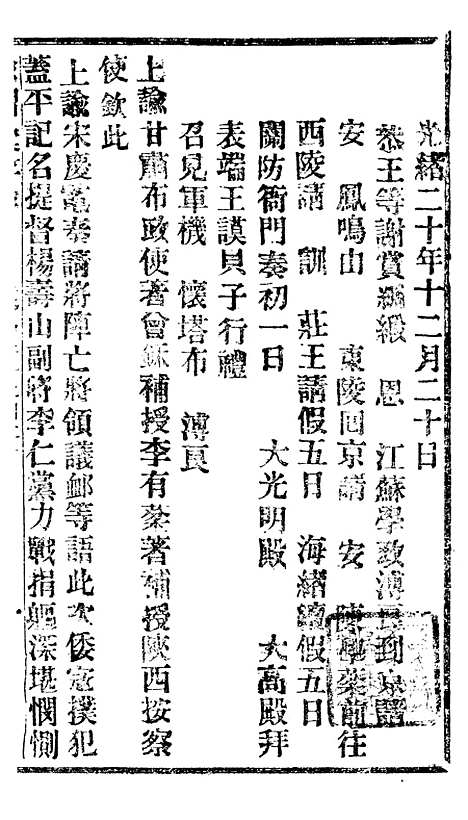 光緒二十年十二月二十日
恭王等謝賞綢緞　恩　江蘇學政溥良到京請
安　鳳鳴山　東陵回京請　安　陳學棻前往
西陵請　訓　莊王請假五日　海緒續假五日
關防衙門奏初一日　大光明殿　大高殿拜
表端王謨貝子行禮
召見軍機　懷塔布　溥良
上諭甘肅布政使著曾鉌補授李有棻著補授陝西按察
使欽此
上諭宋慶電奏請將陣亡將領議卹等語此次倭寇撲犯
蓋平記名提督楊壽山副將李仁黨力戰捐軀深堪憫惻